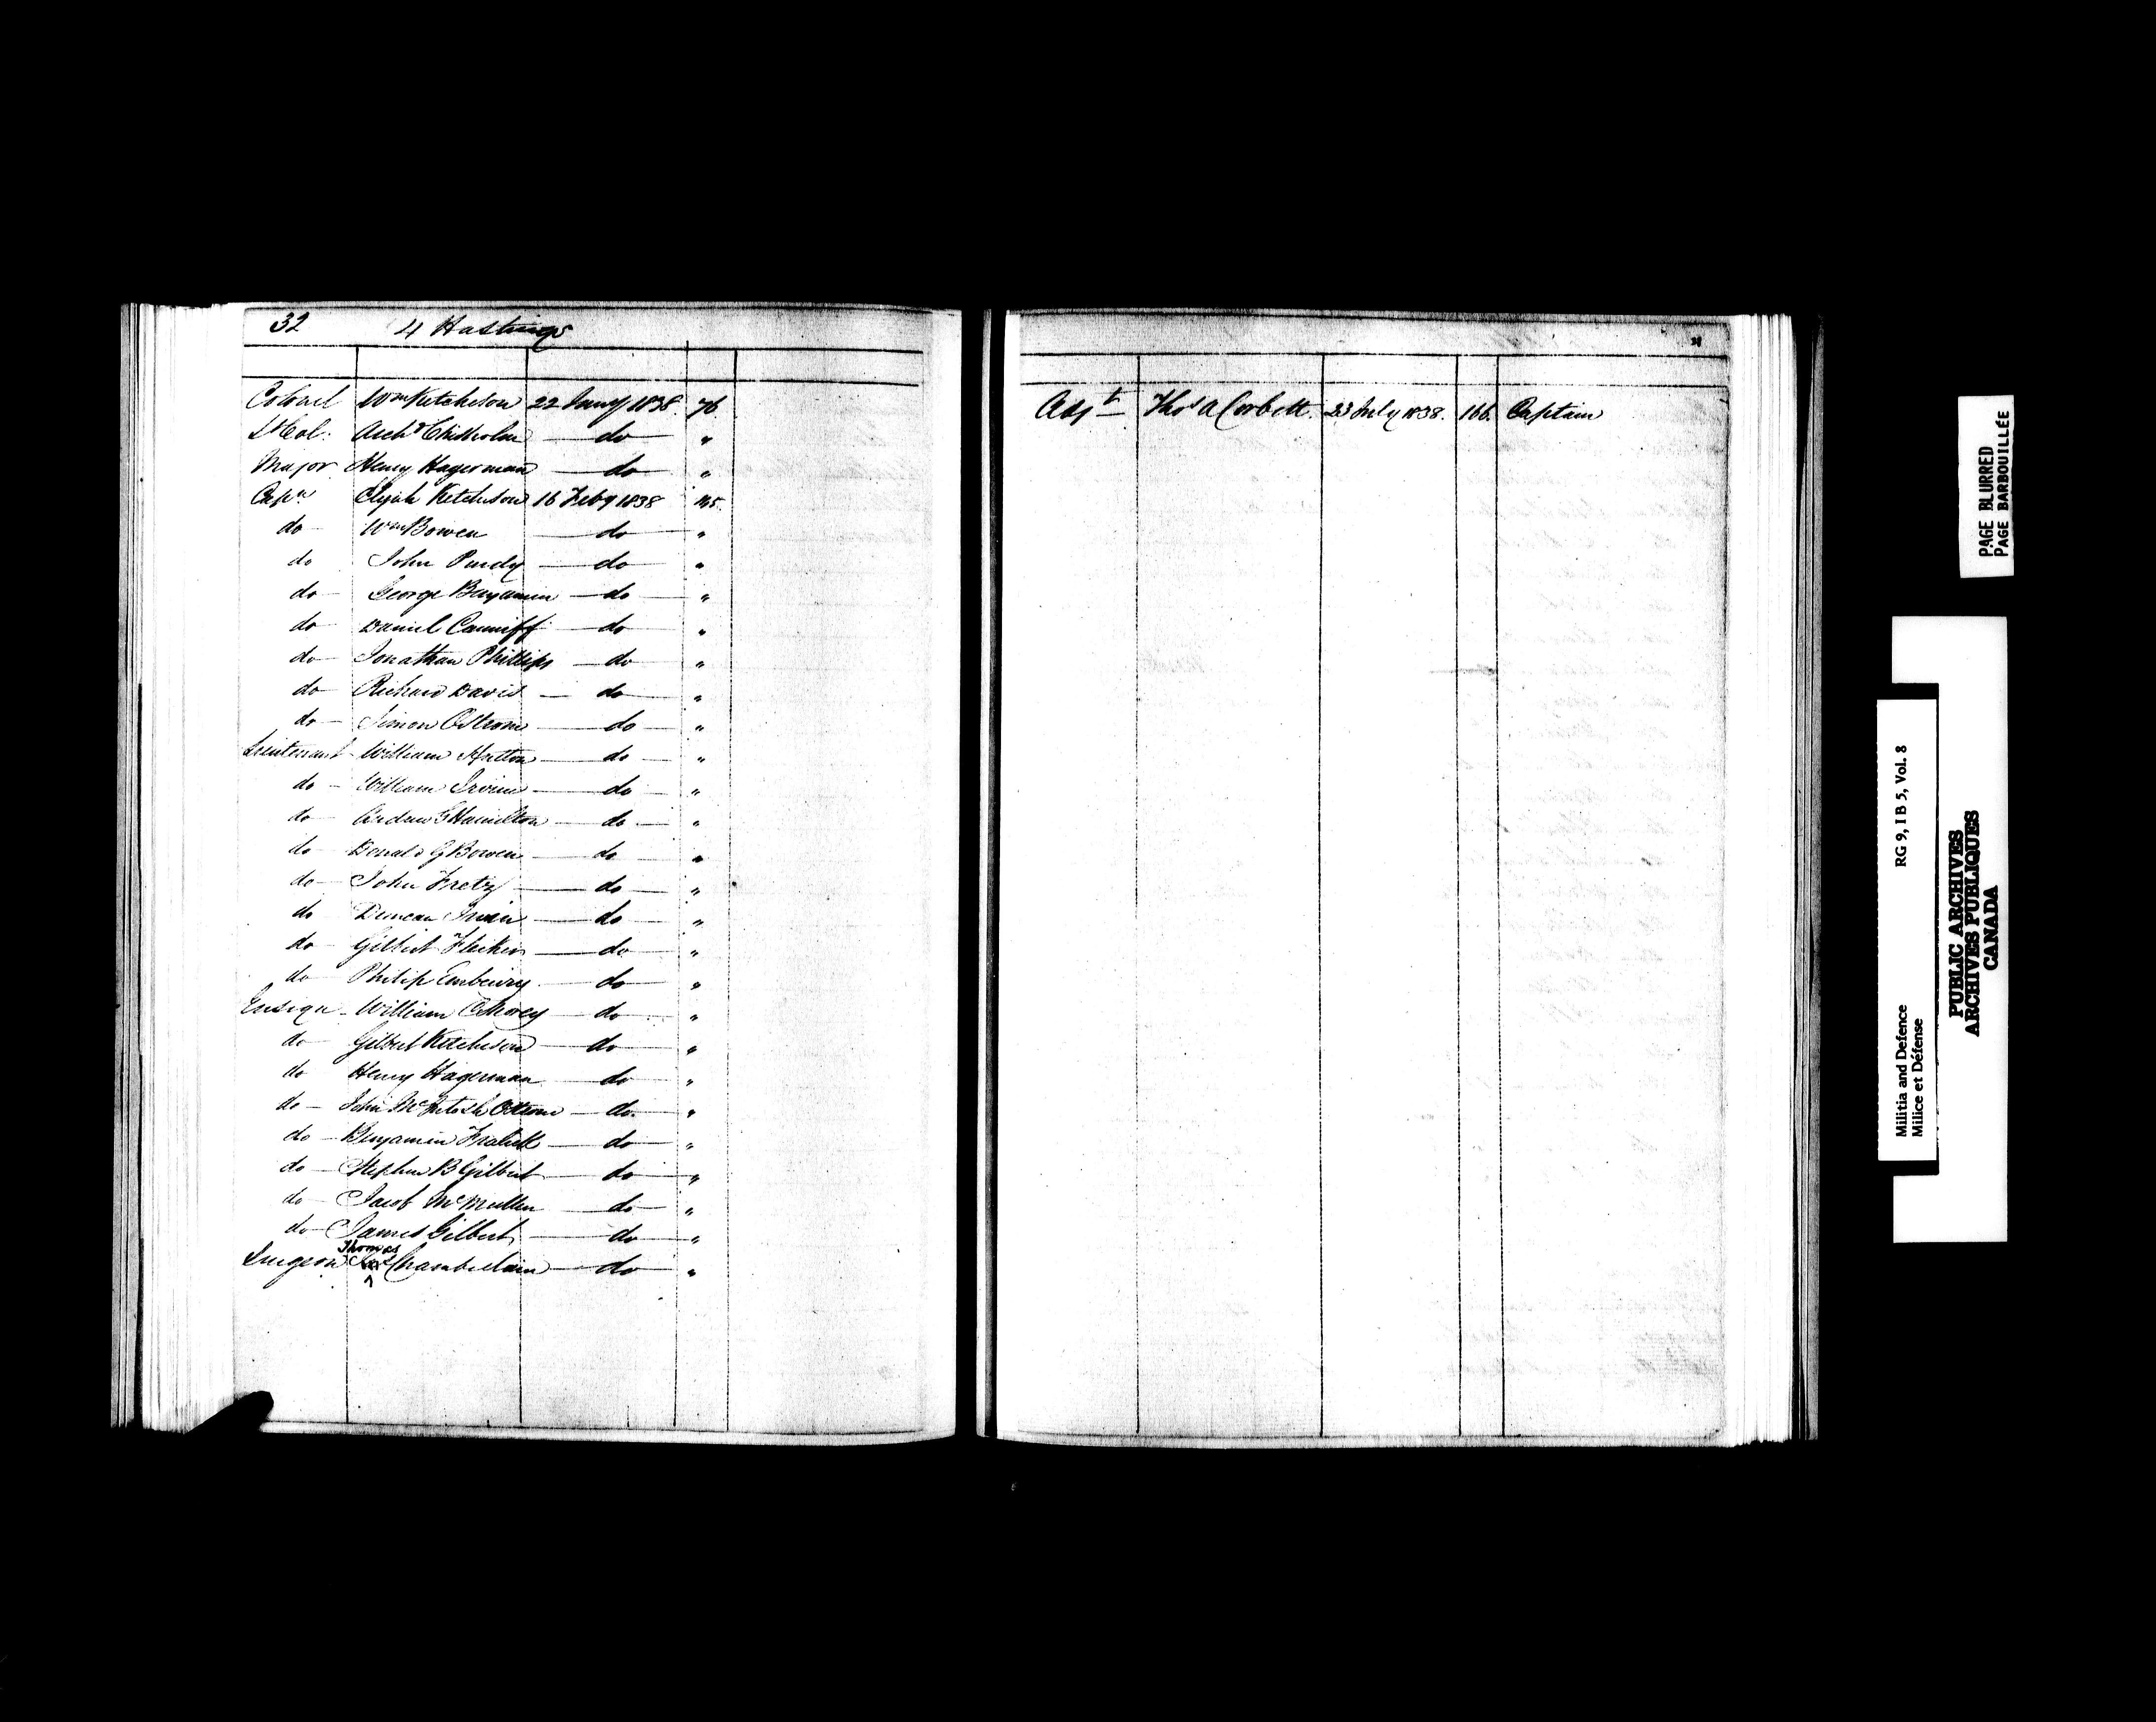 32 4 Hastings
Colonel Wm Ketcheson 22 Jany 1838. 76.
Lt Col: Archd Chisholm do "
Major Henry Hagerman do "
Capn Elijah Ketcheson 16 Feby 1838 145.
do Wm Bowen do "
do John Purdy do "
do George Benjamin do "
do Daniel Canniff do "
do Jonathan Phillips do "
do Richard David do "
do Simon Ostrom do "
Lieutenant William Hutton do "
do William do "
do Andrew G Hamilton do "
do Donald G Bowen do "
do John Fretz do "
do Duncan do "
do Gilbert do "
do Philip Embury do "
Ensign William do "
do Gilbert Ketcheson do "
do Henry Hagerman do "
do John McIntosh Ostrom do "
do Benjamin Fralick do "
do Stephen B Gilbert do "
do Jacob McMullen do "
do James Gilbert do "
Thomas
Surgeon Chamberlain do "
Adjt Thos A Corbett. 23 July 1838. 166. Captain
PAGE BLURRED
PAGE BARBOUILLÉE
RG 9, I B 5, Vol. 8
Militia and Defence
Milice et Défense
PUBLIC ARCHIVES
ARCHIVES PUBLIQUES
CANADA